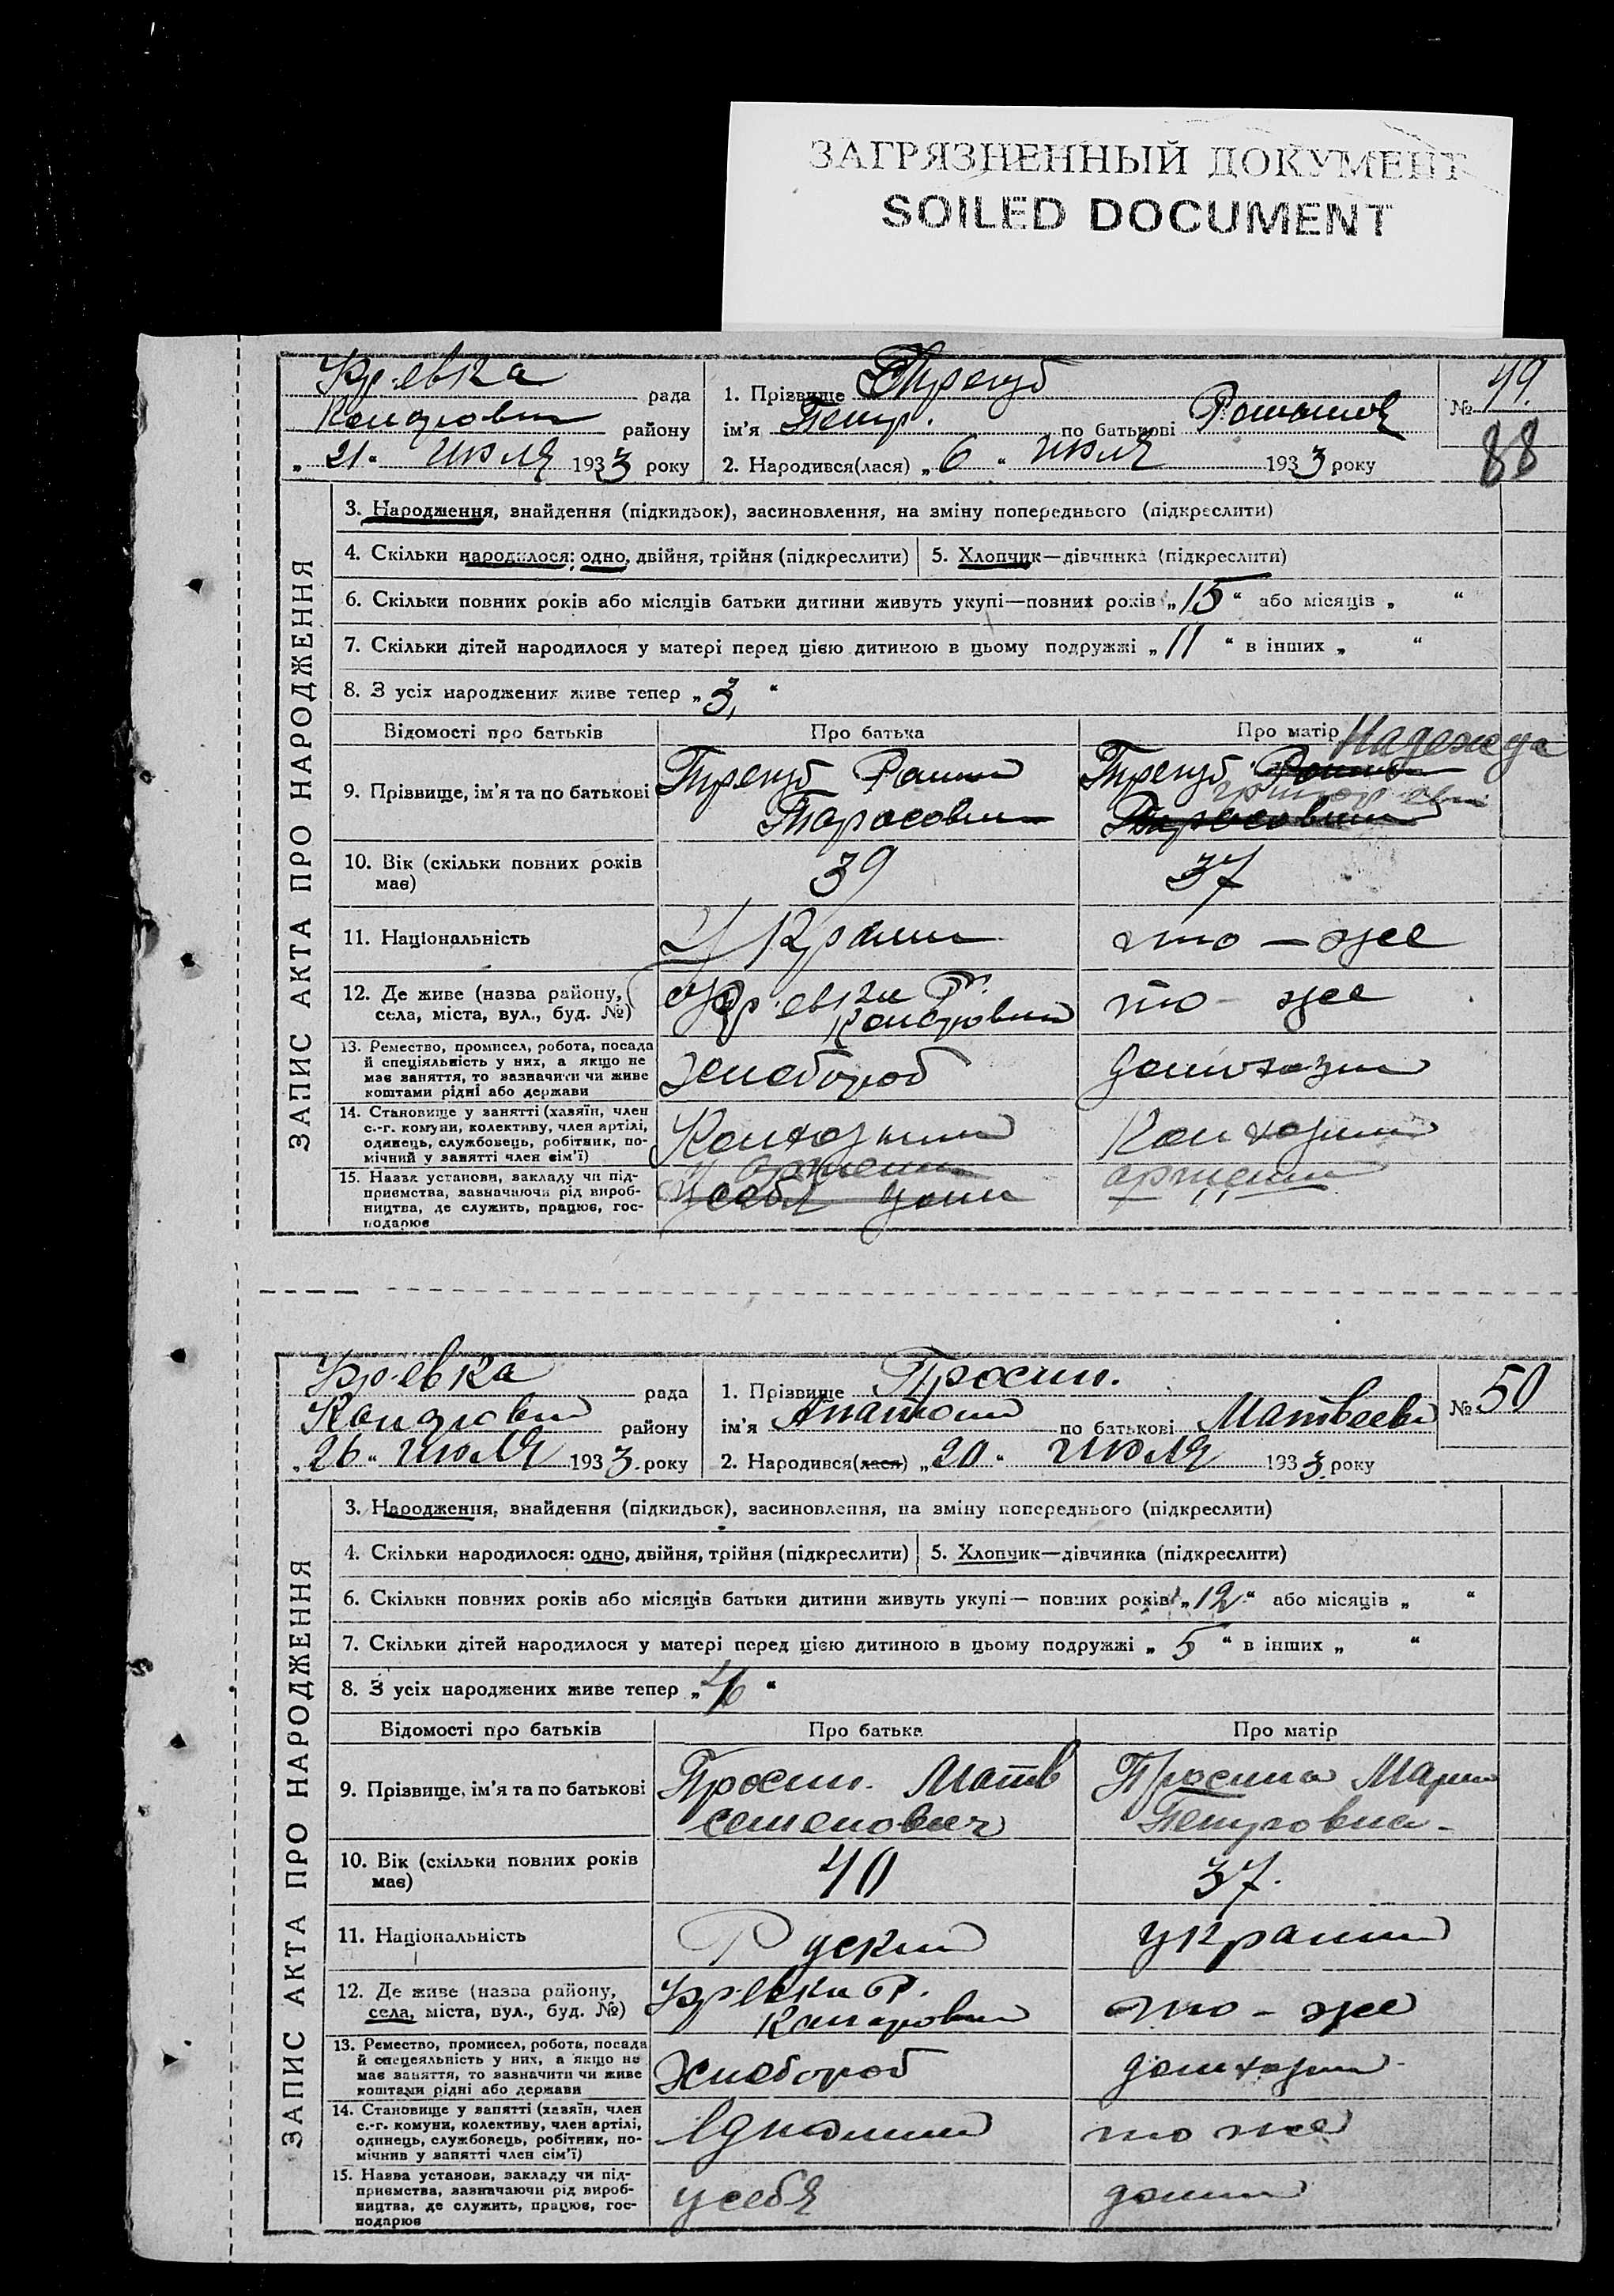 ЗАГРЯЗНЕННЫЙ ДОКУМЕНТ
SOILED DOCUMENT
рада
району
„ 21 “ июля 1933 року
1. Прізвище
ім'я Петр. по батькові
2. Народився(лася) „ 6 “ июля 1933 року
№ 49.
88
ЗАПИС АКТА ПРО НАРОДЖЕННЯ
3. Народження, знайдення (підкидьок), засиновлення, на зміну попереднього (підкреслити)
4. Скільки народилося: одно, двійня, трійня (підкреслити)
5. Хлопчик—дівчинка (підкреслити)
6. Скільки повних років або місяців батьки дитини живуть укупі—повних років „ 15 “ або місяців „ “
7. Скільки дітей народилося у матері перед цією дитиною в цьому подружжі „ 11 “ в інших „ “
8. З усіх народжених живе тепер „ 3, “
Відомості про батьків
Про батька
Про матір
Надежда
9. Прізвище, ім'я та по батькові
10. Вік (скільки повних років
має)
39
37
11. Національність
то - же
12. Де живе (назва району,
села, міста, вул., буд. №)
то - же
13. Ремество, промисел, робота, посада
й спеціяльність у них, а якщо не
має заняття, то зазначити чи живе
коштами рідні або держави
Хлебороб
14. Становище у занятті (хазяїн, член
с.-г. комуни, колективу, член артілі,
одинець, службовець, робітник, по-
мічний у занятті член сім'ї)
15. Назва установи, закладу чи під-
приємства, зазначаючи рід вироб-
ництва, де служить, працює, гос-
подарює
у себя дома
рада
району
„ 26 “ июля 1933. року
1. Прізвище Просин.
ім'я по батькові Матвеев
2. Народився(лася) „ 20 “ июля 1933. року
№ 50
ЗАПИС АКТА ПРО НАРОДЖЕННЯ
3. Народження, знайдення (підкидьок), засиновлення, на зміну попереднього (підкреслити)
4. Скільки народилося: одно, двійня, трійня (підкреслити)
5. Хлопчик—дівчинка (підкреслити)
6. Скільки повних років або місяців батьки дитини живуть укупі— повних років „ 12 “ або місяців „ “
7. Скільки дітей народилося у матері перед цією дитиною в цьому подружжі „ 5 “ в інших „ “
8. З усіх народжених живе тепер „ 4 “
Відомості про батьків
Про батька
Про матір
9. Прізвище, ім'я та по батькові
Просин. Матв
семенович
Просина Мария
Петровна
10. Вік (скільки повних років
має)
40
37.
11. Національність
Руский
украин
12. Де живе (назва району,
села, міста, вул., буд. №)
то - же
13. Ремество, промисел, робота, посада
й спецеяльність у них, а якщо не
має заняття, то зазначити чи живе
коштами рідні або держави
Хлебороб
14. Становище у занятті (хазяїн, член
с.-г. комуни, колективу, член артілі,
одинець, службовець, робітник, по-
мічнив у занятті член сім'ї)
то же
15. Назва установи, закладу чи під-
приємства, зазначаючи рід вироб-
ництва, де служить, працює, гос-
подарює
у себя
дома